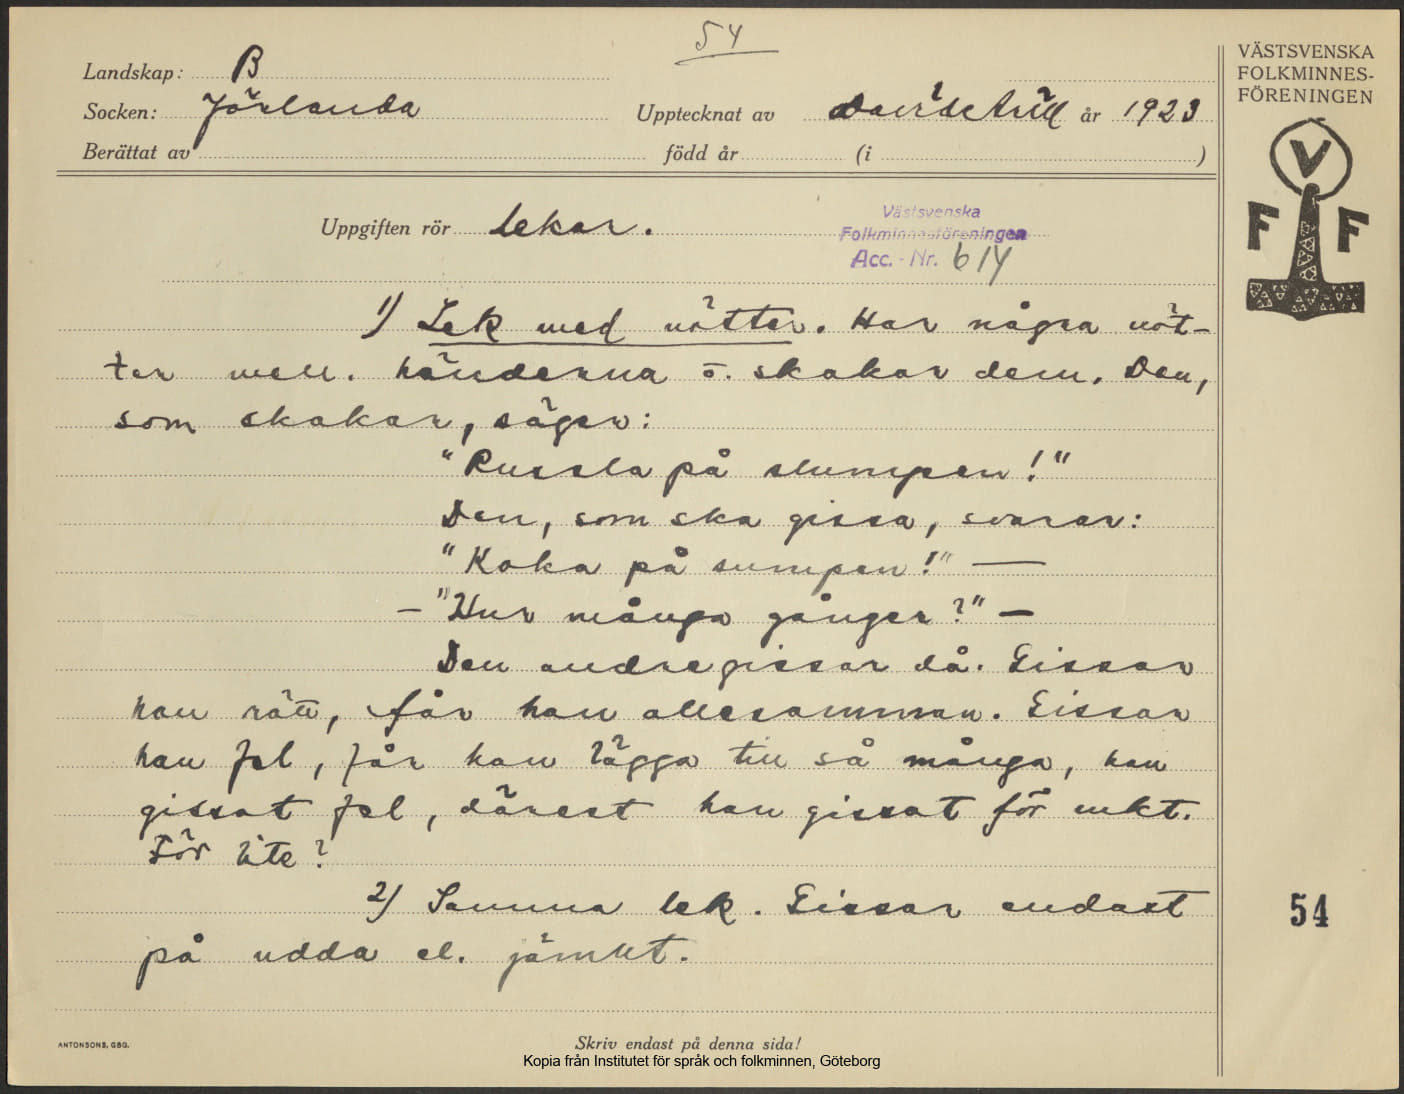 54
Landskap: B
Socken: Jörlanda Upptecknat av David Arill år 1923
Berättat av född år (i )
VÄSTSVENSKA
FOLKMINNES-
FÖRENINGEN
V
F F
Uppgiften rör lekar.
Västsvenska
Folkminnesföreningen
Acc. - Nr. 614
1) Lek med nötter. Har några nöt-
ter mell. händerna o. skakar dem. Den,
som skakar, säger:
"Russla på slumpen!"
Den, som ska gissa, svarar:
"Koka på sumpen!" —
— "Hur många gånger?" —
Den andre gissar då. Gissar
han rätt, får han allesamman. Gissar
han fel, får han lägga till så många, han
gissat fel, därest han gissat för mkt.
För lite?
2) Samma lek. Gissar endast
på udda el. jämnt.
54
ANTONSONS, GBG.
Skriv endast på denna sida!
Kopia från Institutet för språk och folkminnen, Göteborg